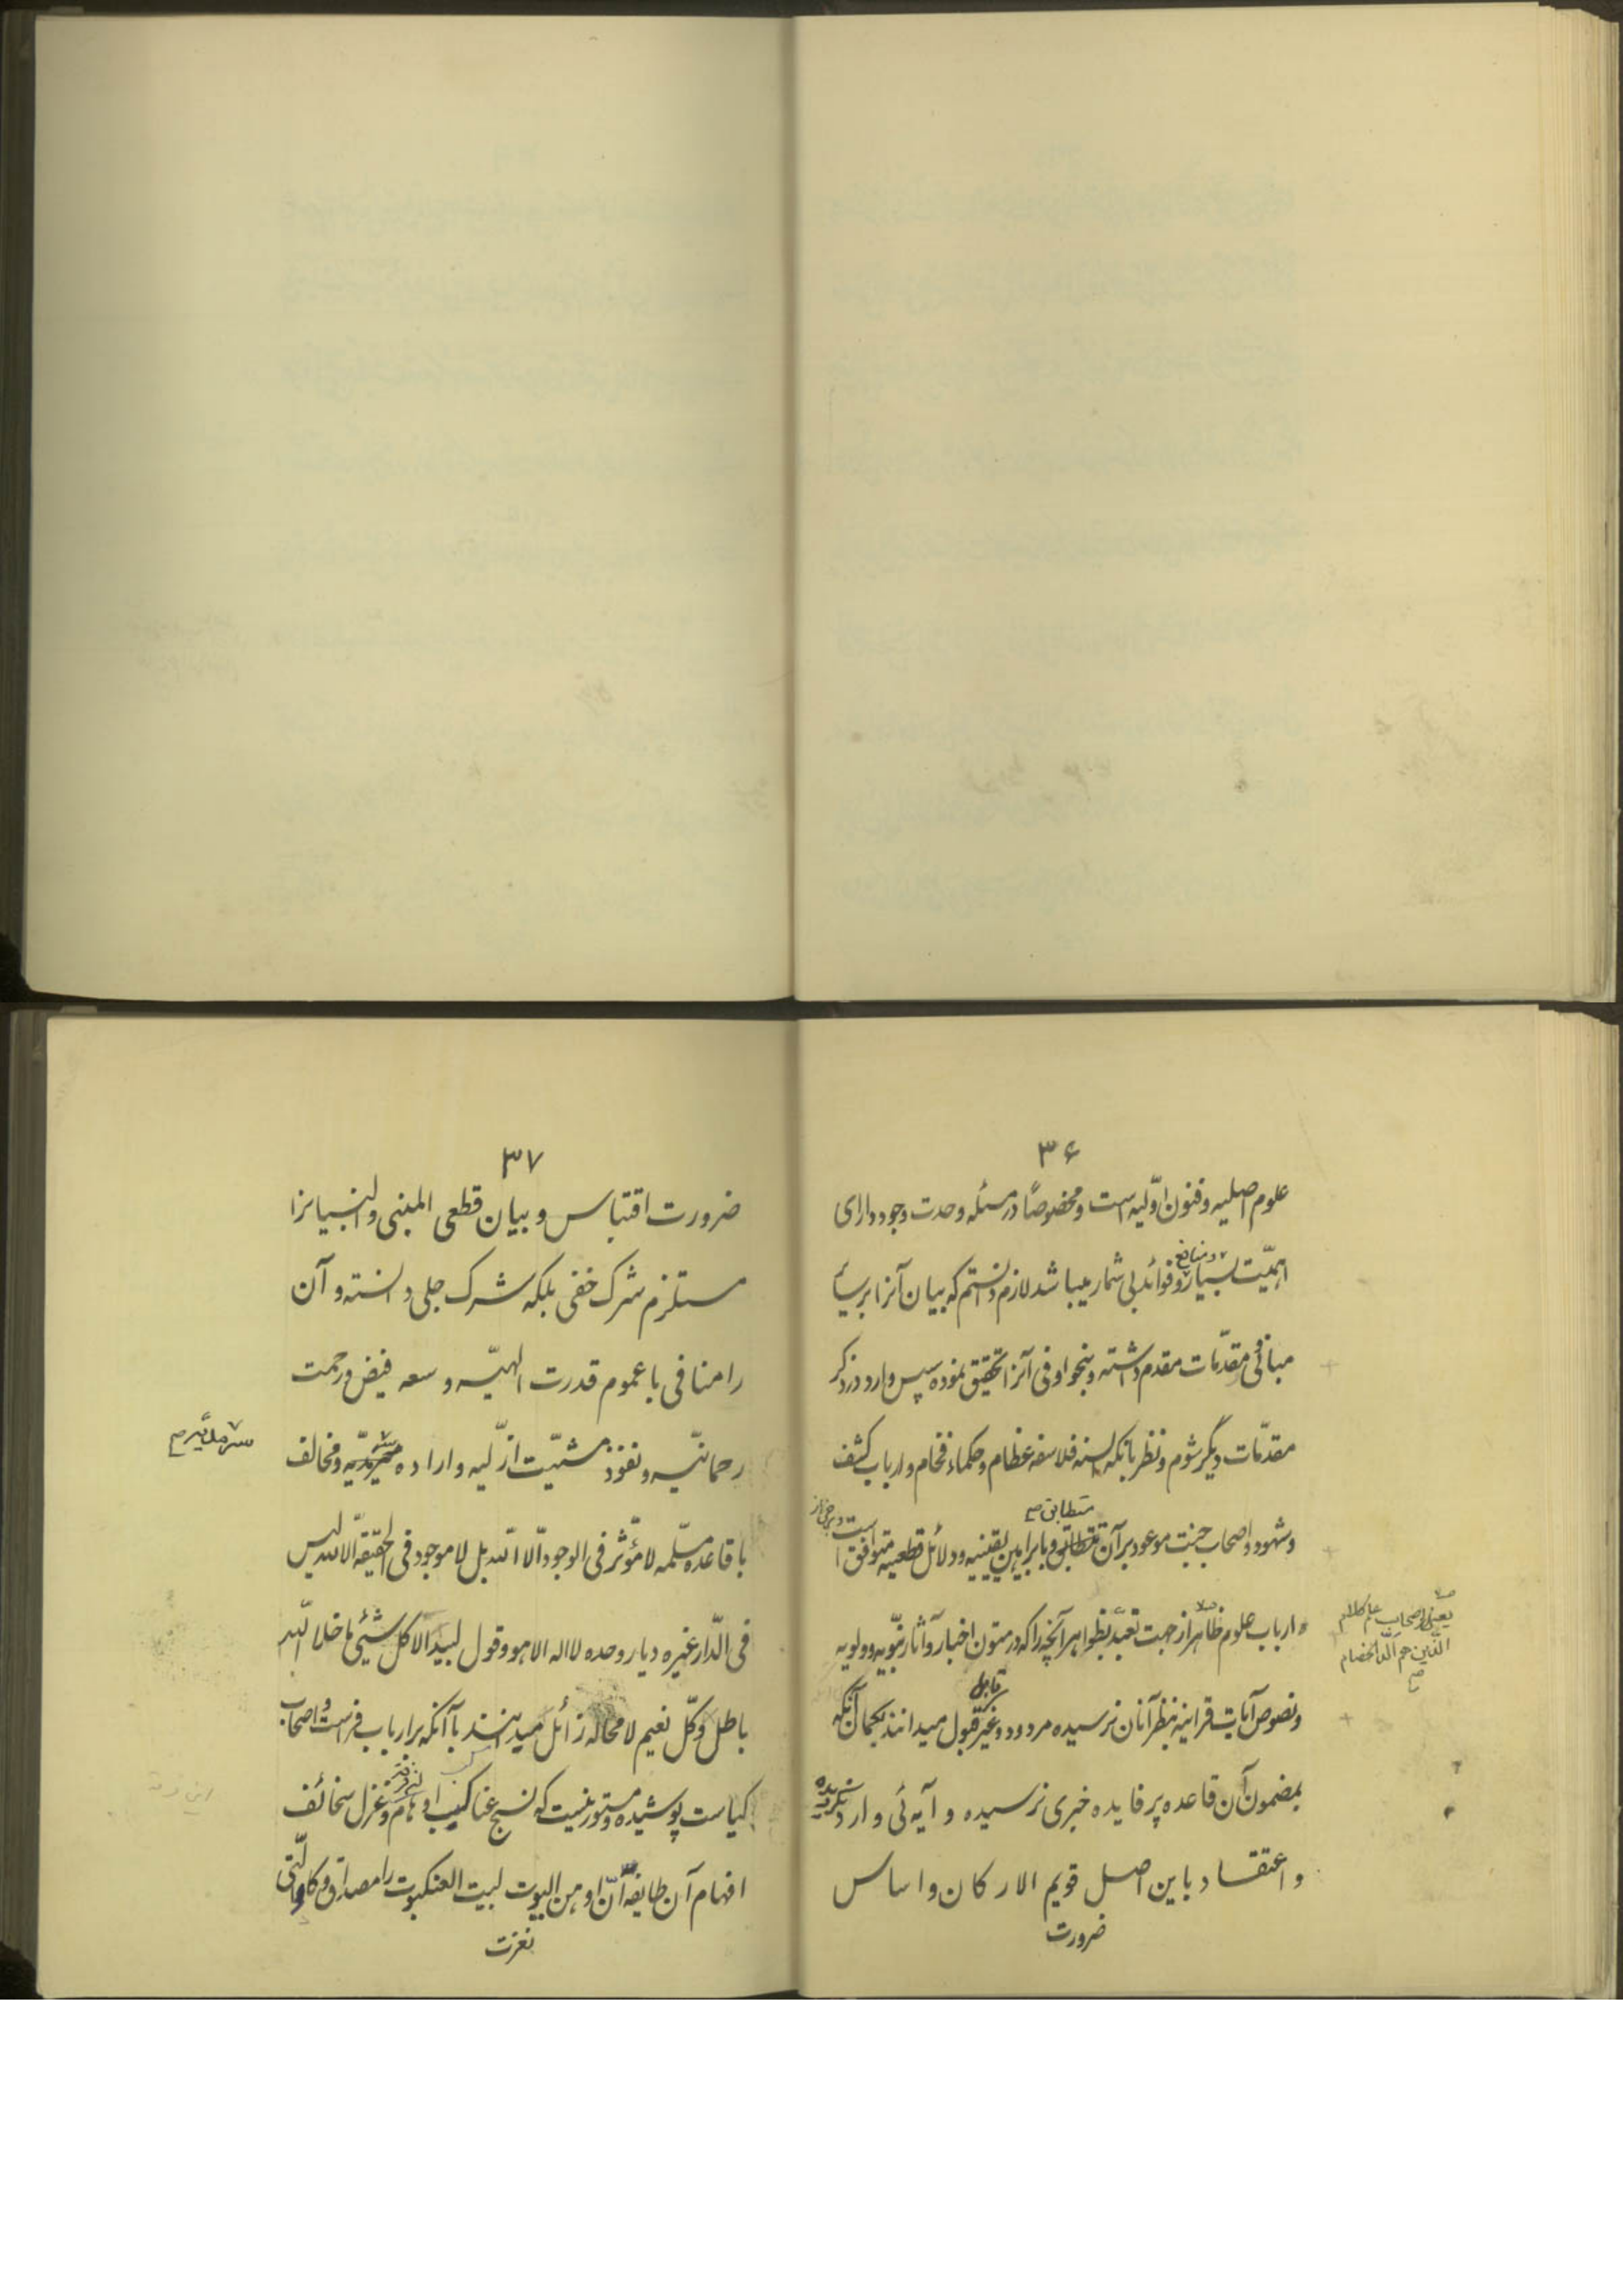 ۳۶
علوم اصلیه و فنون اوّلیه است و مخصوصاً در مسئله وحدت وجود دارای
اهمّیّت بسیار و منافع و فوائد بی شمار میباشد لازم دانستم که بیان آنرا بر سایر
مبانی و مقدّمات مقدم داشته و بنحو اوفی آنرا تحقیق نموده سپس وارد در ذکر
مقدّمات دیگر شوم و نظر بآنکه السنه فلاسفه عظام و حکماء فخام و ارباب کشف
و شهود و اصحاب جنّت موعود بر آن متطابق و با براهین یقینیه و دلائل قطعیه متوافق است و برخی از
ارباب علوم ظاهر از جهت تعبّد بظواهر آنچه را که در متون اخبار و آثار نبّویه و ولویه
یعنی اصحاب علم کلام
الّذین هم الدّ الخصام
و نصوص آیات قرانیه بنظر آنان نرسیده مردود و غیر قابل قبول میدانند بگمان آنکه
بمضمون آن قاعده پر فایده خبری نرسیده و آیه ئی وارد نگردیده
و اعتقاد باین اصل قویم الارکان و اساس
ضرورت
۳۷
ضرورت اقتباس و بیان قطعی المبنی و البنیانرا
مستلزم شرک خفی بلکه شرک جلی دانسته و آن
را منافی با عموم قدرت الهیّه و سعه فیض و رحمت
رحمانیّه و نفوذ مشیّت ازلّیه و اراده سرمدیّه و مخالف
سرمدیّه
با قاعده مسلّمه لا مؤثّر فی الوجود الّا اللّه بل لا موجود فی الحقیقة الّا اللّه لیس
فی الدّار غیره دیار وحده لا اله الا هو و قول لبید الا کل شیئی ما خلا اللّه
باطل و کلّ نعیم لا محاله زائل میدانند با آنکه بر ارباب فراست و اصحاب
کیاست پوشیده و مستور نیست که نسج عناکیب اوهام و غزل سخائف
افهام آن طایفه انّ اوهن البیوت لبیت العنکبوت را مصداق و کالّتی
نقضت